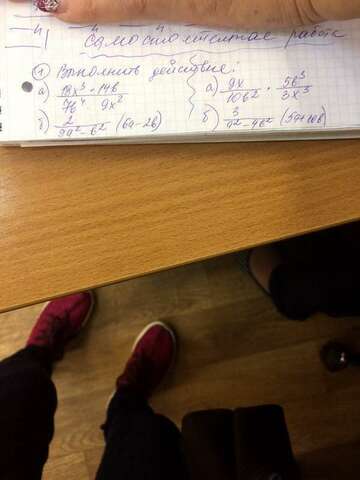 Самостоятельная работа
① Выполнить действие:
а) 18x³ · 14b / 7b⁴ 9x²
б) 2 / 9a² - b² (6a - 2b)
а) 9x / 10b² · 5b³ / 3x³
б) 3 / a² - 4b²